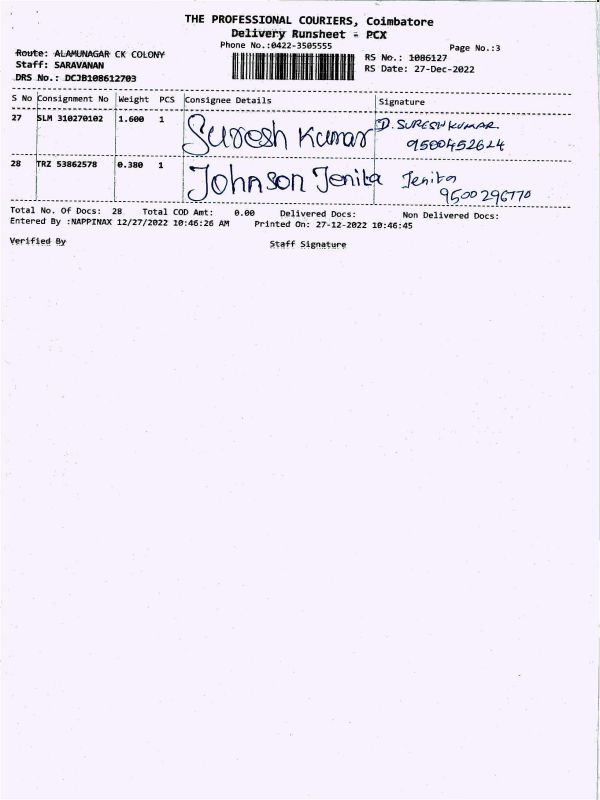 THE PROFESSIONAL COURIERS, Coimbatore
Delivery Runsheet - PCX
Phone No.:0422-3505555
Page No.:3
Route: ALAMUNAGAR CK COLONY
Staff: SARAVANAN
DRS No.: DCJB108612703
RS No.: 1086127
RS Date: 27-Dec-2022
S No Consignment No Weight PCS Consignee Details Signature
27 SLM 310270102 1.600 1 Suresh Kumar D. SURESH KUMAR
9500452624
28 TRZ 53862578 0.380 1 Johnson Jenita Jenita
9500296770
Total No. Of Docs: 28 Total COD Amt: 0.00 Delivered Docs: Non Delivered Docs:
Entered By :NAPPINAX 12/27/2022 10:46:26 AM Printed On: 27-12-2022 10:46:45
Verified By Staff Signature